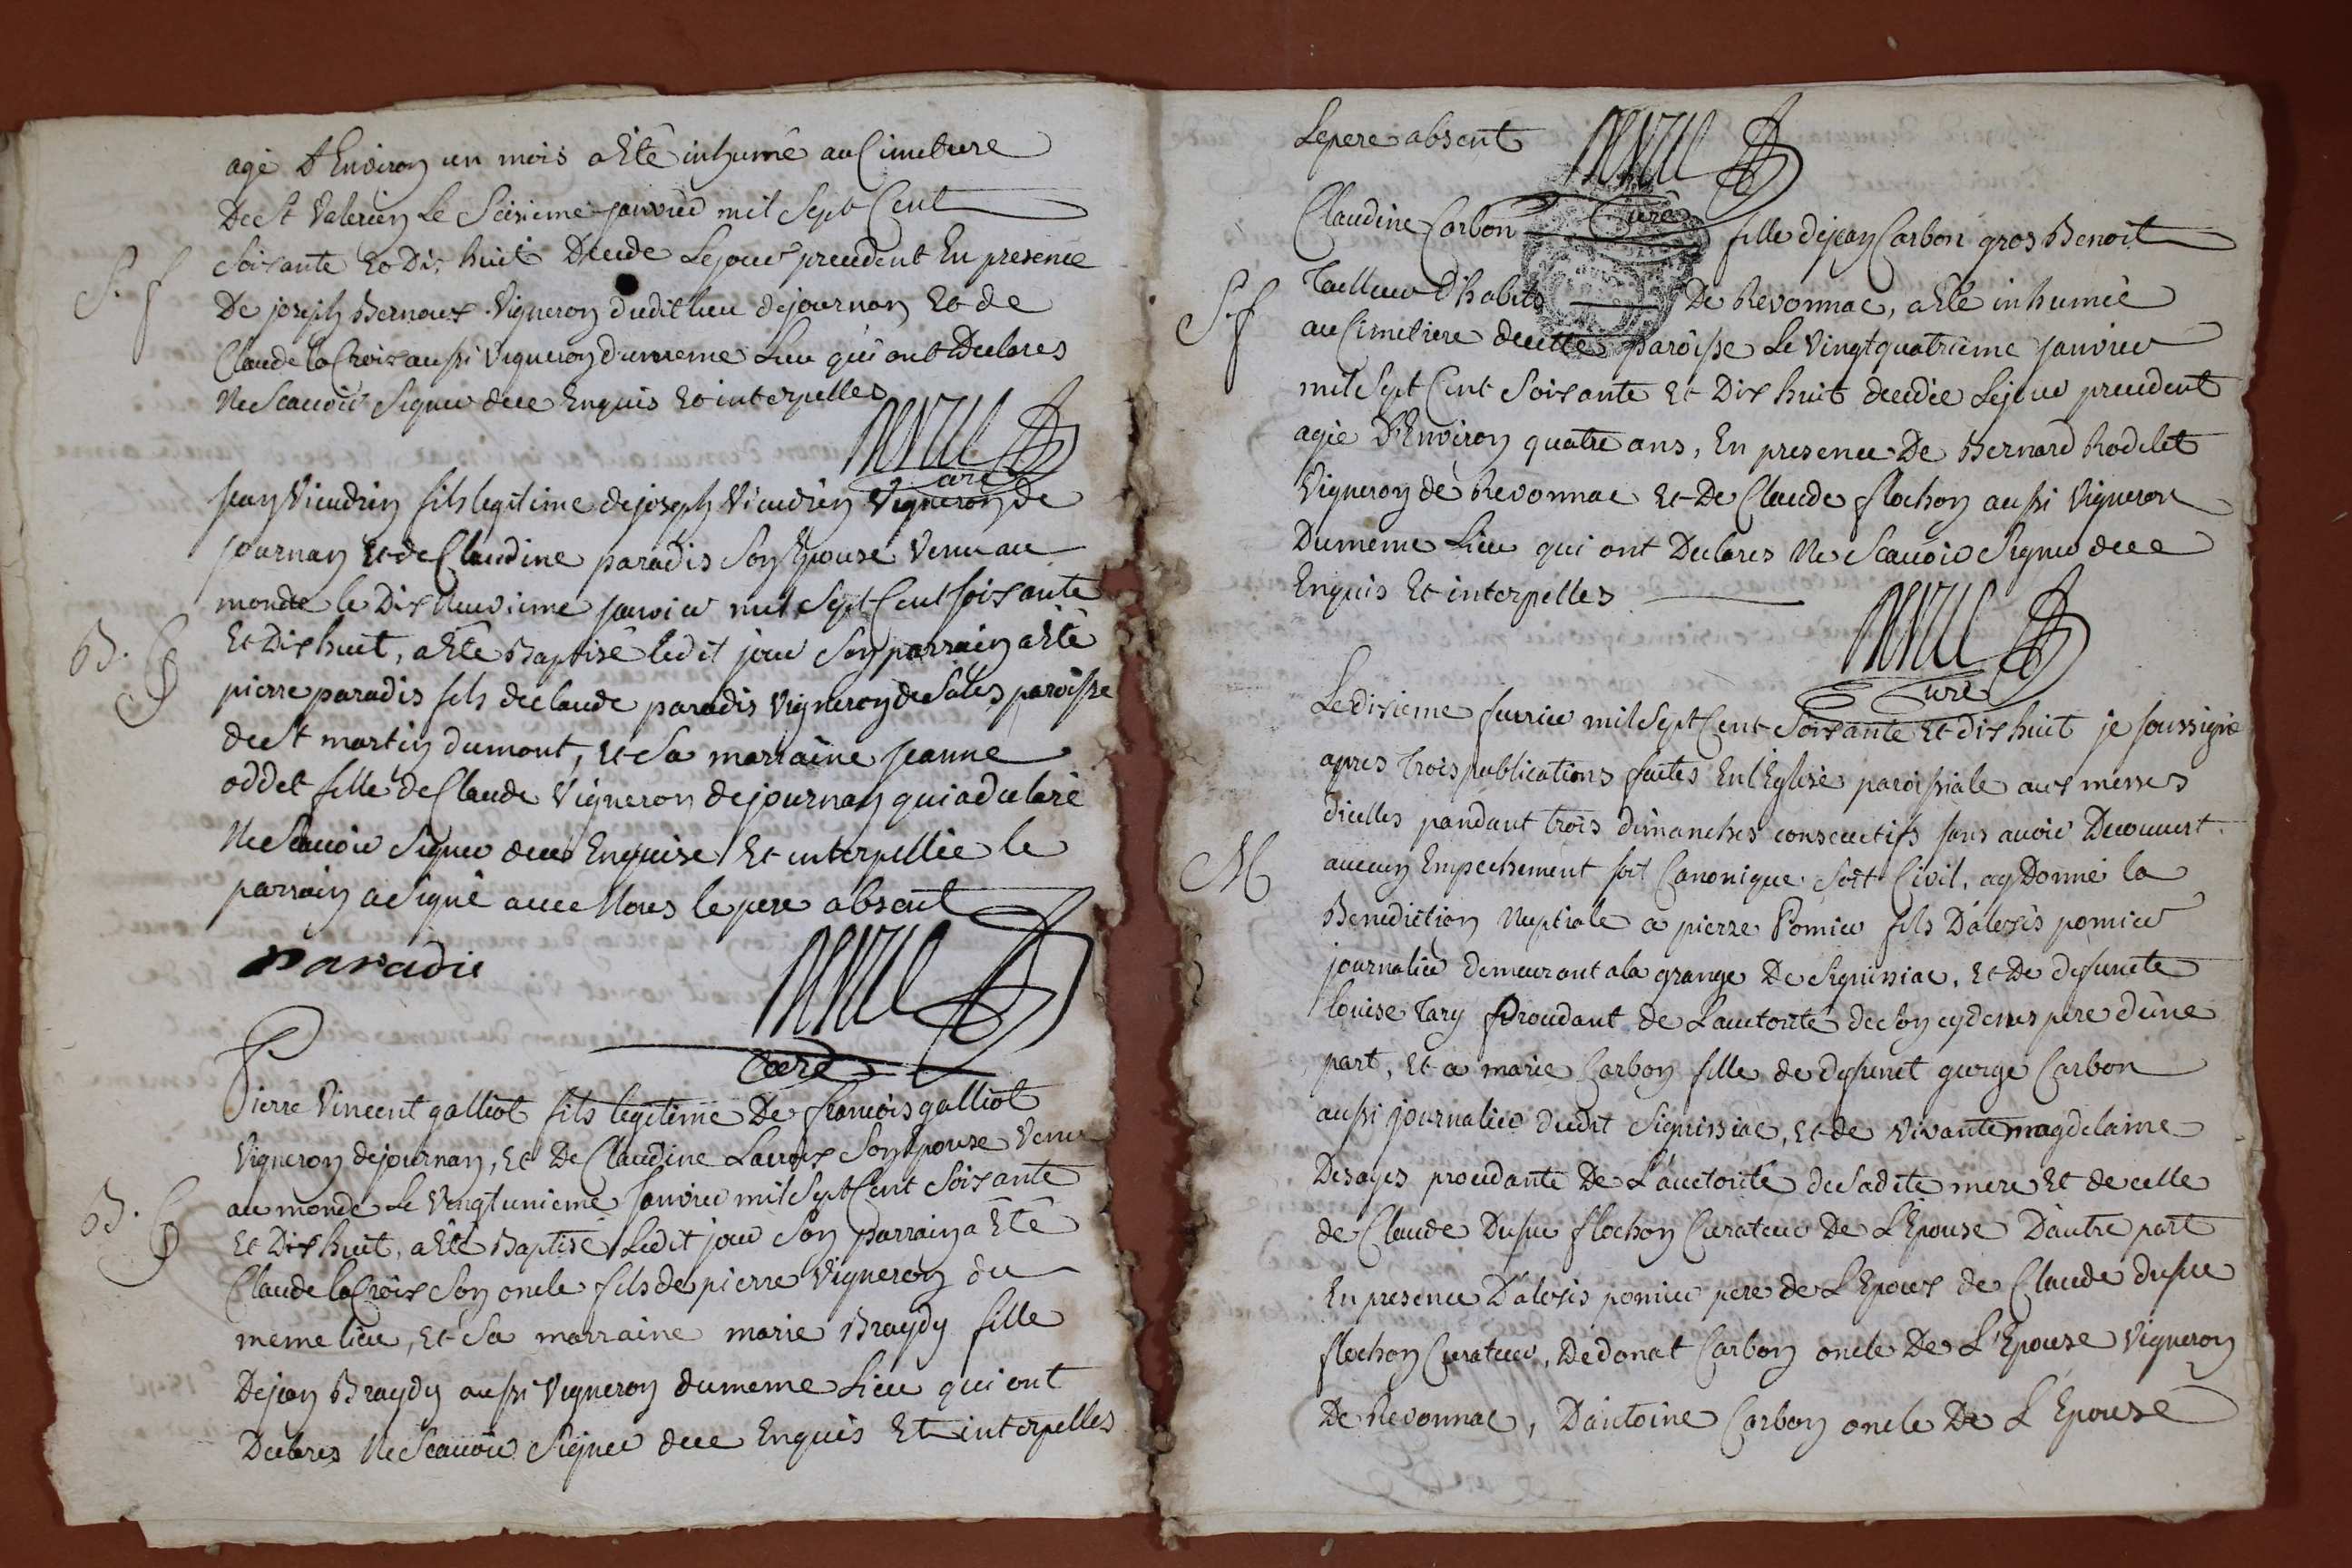 agé D'Environ un mois a Eté inhumé au Cimetiere
De St Valerien Le Seizieme janvier mil Sept Cent
S. f
Soixante Et Dix huit Decedé Le jour precedent En presence
De joseph Bernoux Vigneron dudit lieu de journan Et de
Claude la Croix aussi Vigneron du meme Lieu qui ont Declarés
Ne Scavoir Signer de ce Enquis Et interpellés
Curé
jean Vieudrin fils legitime de joseph Vieudrin Vigneron de
journan Et de Claudine paradis Son Epouse Venu au
monde le Dix Neuvieme janvier mil Sept Cent soixante
B. G
Et Dix huit, a Eté Baptisé ledit jour Son parrain a Eté
pierre paradis fils de claude paradis Vigneron de Sales paroisse
de St martin dumont, Et Sa marraine jeanne
oddet fille de Claude Vigneron de journan qui a declaré
Ne Scavoir Signer de ce Enquise Et interpellée le
parrain a Signé avec Nous le pere absent
Paradis
Curé
Pierre Vincent galliot fils legitime De francois galliot
Vigneron de journan, Et De Claudine Lacroix Son Epouse Venu
au monde Le Vingt unieme janvier mil Sept Cent Soixante
B. G
Et Dix huit, a Eté Baptisé Ledit jour Son parrain a Eté
Claude la Croix Son oncle fils de pierre Vigneron du
meme lieu, Et Sa marraine marie Braydy fille
De jean Braydy aussi Vigneron du meme Lieu qui ont
Declarés Ne Scavoir Signer de ce Enquis Et interpellés
Le pere absent
Curé
Claudine Carbon fille de jean Carbon gros Benoit
S. f
Tailleur D'habits De Revonnac, a Eté inhumée
au Cimetiere de cette paroisse Le Vingt quatrieme janvier
mil Sept Cent Soixante Et Dix huit decedée Le jour precedent
agée D'Environ quatre ans, En presence De Bernard Rodelet
Vigneron de Revonnac Et De Claude flochon aussi Vigneron
Du meme Lieu qui ont Declarés Ne Scavoir Signer de ce
Enquis Et interpellés
Curé
Le dixieme fevrier mil Sept Cent Soixante Et dix huit je soussigné
apres Trois publications faites En l'Eglise paroissiale aux messes
d'icelles pandant trois dimanches consecutifs sans avoir Decouvert
M
aucun Empechement soit Canonique Soit Civil, ay Donné la
Benediction Nuptiale a pierre Pomier fils D'alexis pomier
journalier demeurant a la grange De Signissiac, Et De defuncte
louise Tary procedant de L'auctorité de Son cy dessus pere d'une
part, Et a marie Carbon fille de defunct george Carbon
aussi journalier dudit Signissiac, Et de vivante magdelaine
Desages procedante De L'auctorité de Sadite mere Et de celle
de Claude Dufur flochon Curateur De L'Epouse D'autre part
En presence D'alexis pomier pere de L'Epoux de Claude dufur
flochon Curateur, De donat Carbon oncle De L'Epouse Vigneron
De Revonnac, D'antoine Carbon oncle De L'Epouse